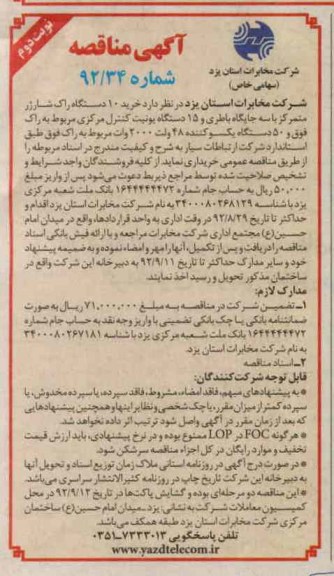 نوبت دوم
آگهی مناقصه
شماره ۹۲/۳۴
شرکت مخابرات استان یزد
(سهامی خاص)
شرکت مخابرات استان یزد در نظر دارد خرید ۱۰ دستگاه راک شارژر
متمرکز با سه جایگاه باطری و ۱۵ دستگاه یونیت کنترل مرکزی مربوط به راک
فوق و ۵۰ دستگاه یکسوکننده ۴۸ ولت ۲۰۰۰ وات مربوط به راک فوق طبق
استاندارد شرکت ارتباطات سیار به شرح و کیفیت مندرج در اسناد مربوطه را
از طریق مناقصه عمومی خریداری نماید. از کلیه فروشندگان واجد شرایط و
تشخیص صلاحیت شده توسط مراجع ذیربط دعوت می‌شود پس از واریز مبلغ
۵۰,۰۰۰ ریال به حساب جام شماره ۱۶۴۴۴۴۴۴۷۲ بانک ملت شعبه مرکزی
یزد با شناسه ۳۴۰۰۰۸۰۲۶۸۱۲۹ به نام شرکت مخابرات استان یزد اقدام و
حداکثر تا تاریخ ۹۲/۸/۲۹ در وقت اداری به واحد قراردادها، واقع در میدان امام
حسین(ع) مجتمع اداری شرکت مخابرات مراجعه و با ارائه فیش بانکی اسناد
مناقصه را دریافت و پس از تکمیل، آنها را مهر و امضاء نموده و به ضمیمه پیشنهاد
خود و سایر مدارک حداکثر تا تاریخ ۹۲/۹/۱۱ به دبیرخانه این شرکت واقع در
ساختمان مذکور تحویل و رسید اخذ نمایند.
مدارک لازم:
۱ـ تضمین شرکت در مناقصه به مبلغ ۷۱,۰۰۰,۰۰۰ ریال به صورت
ضمانتنامه بانکی یا چک بانکی تضمینی یا واریز وجه نقد به حساب جام شماره
۱۶۴۴۴۴۴۴۷۲ بانک ملت شعبه مرکزی یزد با شناسه ۳۴۰۰۰۸۰۲۶۷۱۸۱
به نام شرکت مخابرات استان یزد.
۲ـ اسناد مناقصه
قابل توجه شرکت‌کنندگان:
* به پیشنهادهای مبهم، فاقد امضاء، مشروط، فاقد سپرده، یا سپرده مخدوش، یا
سپرده کمتر از میزان مقرر، یا چک شخصی و نظایر اینها و همچنین پیشنهادهایی
که بعد از زمان مقرر در آگهی واصل شود ترتیب اثر داده نخواهد شد.
* هرگونه FOC در LOP ممنوع بوده و در نرخ پیشنهادی، باید ارزش قیمت
تخفیف و موارد رایگان در کل اجزاء مناقصه سرشکن شود.
* در صورت درج آگهی در روزنامه استانی ملاک زمان توزیع اسناد و تحویل آنها
به دبیرخانه این شرکت تاریخ چاپ در روزنامه کثیرالانتشار سراسری می‌باشد.
* این مناقصه دو مرحله‌ای بوده و گشایش پاکت‌ها در تاریخ ۹۲/۹/۱۲ در محل
کمیسیون معاملات شرکت به نشانی یزد ـ میدان امام حسین(ع) ساختمان
مرکزی شرکت مخابرات استان یزد طبقه همکف می‌باشد.
تلفن پاسخگویی ۷۲۳۳۰۱۳ـ۰۳۵۱
www.yazdtelecom.ir